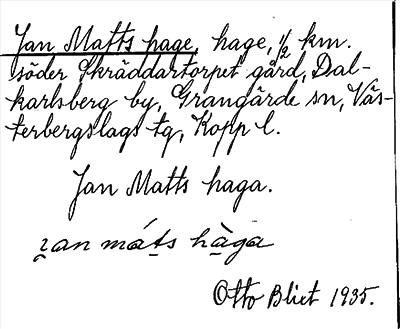 Jan Matts hage, hage, 1/2 km.
söder Skräddartorpet gård, Dal-
karlsberg by, Grangärde sn, Väs-
terbergslags tg, Kopp l.
Jan Matts haga.
ʒan máts hàga
Otto Blixt 1935.